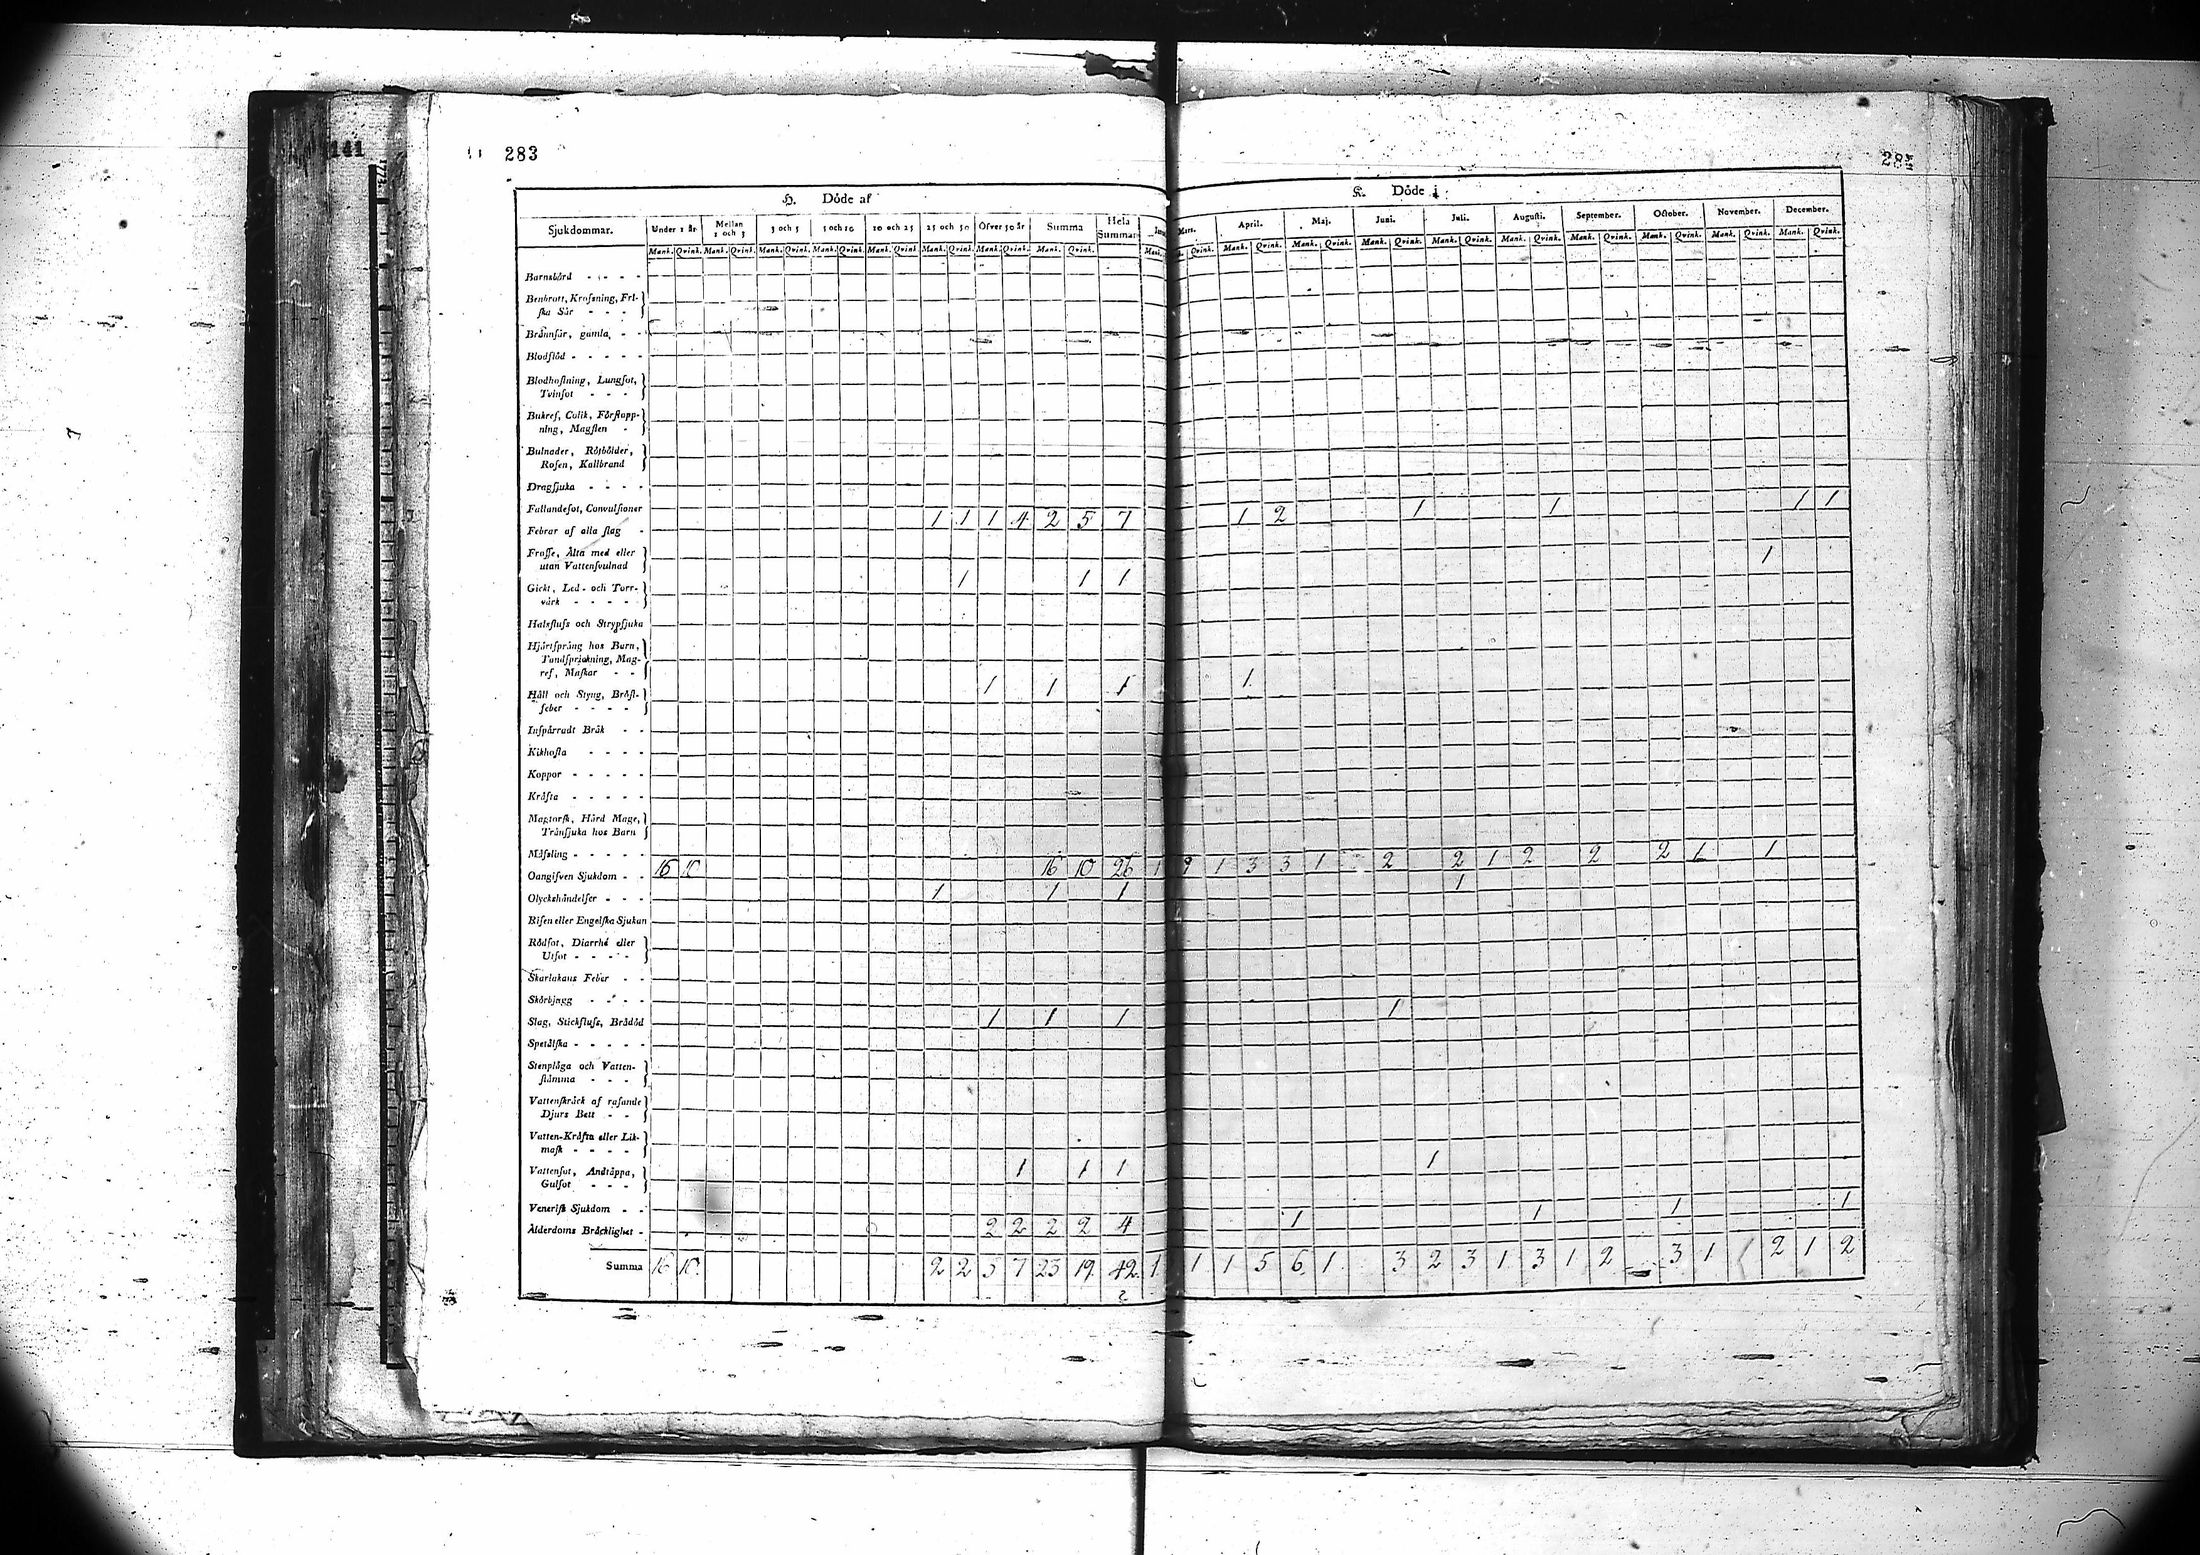 141
283
H. Döde af
K. Döde i
Sjukdommar. Under 1 år Mellan 1 och 3 3 och 5 5 och 10 10 och 25 25 och 50 Öfver 50 år Summa Hela Summan Mars. April. Maj. Juni. Juli. Augusti. September. October. November. December.
Mank. Qvink. Mank. Qvink. Mank. Qvink. Mank. Qvink. Mank. Qvink. Mank. Qvink. Mank. Qvink. Mank. Qvink. Mank. Qvink. Mank. Qvink. Mank. Qvink. Mank. Qvink. Mank. Qvink. Mank. Qvink. Mank. Qvink. Mank. Qvink. Mank. Qvink. Mank. Qvink.
Barnsbörd - - - -
Benbrott, Krossning, Fri-
ska Sår - - -
Brännsår, gamla, - -
Blodflöd - - - - -
Blodhostning, Lungsot,
Tvinsot - - -
Bukref, Colik, Förstopp-
ning, Magsten -
Bulnader, Rötbölder,
Rosen, Kallbrand
Dragsjuka - - - -
Fallandesot, Convulsioner
Febrar af alla slag - 1 1 1 4 2 5 7 1 2 1 1 1 1
Frosse, Älta med eller
utan Vattensvulnad
Gickt, Led- och Torr-
värk - - - - - 1 1 1 1
Halsfluss och Strypsjuka
Hjärtsprång hos Barn,
Tandsprickning, Mag-
ref, Maskar - -
Håll och Styng, Bröst-
feber - - - - 1 1 1 1
Inspärradt Bråk - -
Kikhosta - - - -
Koppor - - - - -
Kräfta - - - - -
Magtorsk, Hård Mage,
Trånsjuka hos Barn
Mässling - - - - -
Oangifven Sjukdom - - 16 10 16 10 26 1 1 3 3 1 2 2 1 2 2 2 1 1
Olyckshändelser - - - 1 1 1 1
Risen eller Engelska Sjukan
Rödsot, Diarrhé eller
Utsot - - - -
Skarlakans Feber - -
Skörbjugg - - - -
Slag, Stickfluss, Brådöd 1 1 1 1
Spetälska - - - - -
Stenplåga och Vatten-
stämma - - -
Vattenskräck af rasande
Djurs Bett - -
Vatten-Kräfta eller Lik-
mask - - - -
Vattensot, Andtäppa,
Gulsot - - - 1 1 1 1
Venerisk Sjukdom - -
Ålderdoms Bräcklighet - 2 2 2 2 4 1 1 1 1
Summa 16 10 2 2 5 7 23 19 42 1 1 1 5 6 1 3 2 3 1 3 1 2 3 1 2 1 2